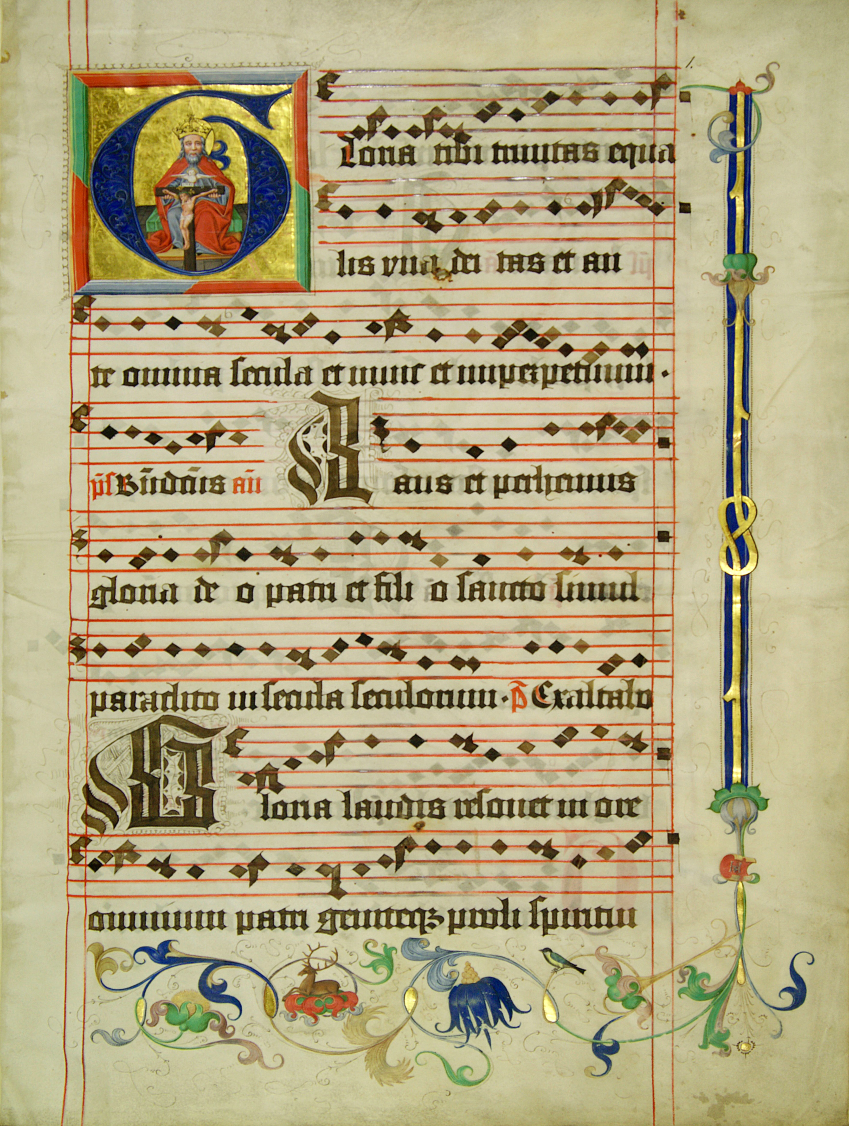 Gloria tibi trinitas equa
lis vna dei tas et an
te omnia secula et nunc et inperpetuum.
ps Bn̄dcīs an̄ Laus et perhennis
gloria de o patri et fili o sancto simul
paraclito in secula seculorum. p̄s Exaltabo
Gloria laudis resonet in ore
omnium patri geniteqꝫ proli spiritui